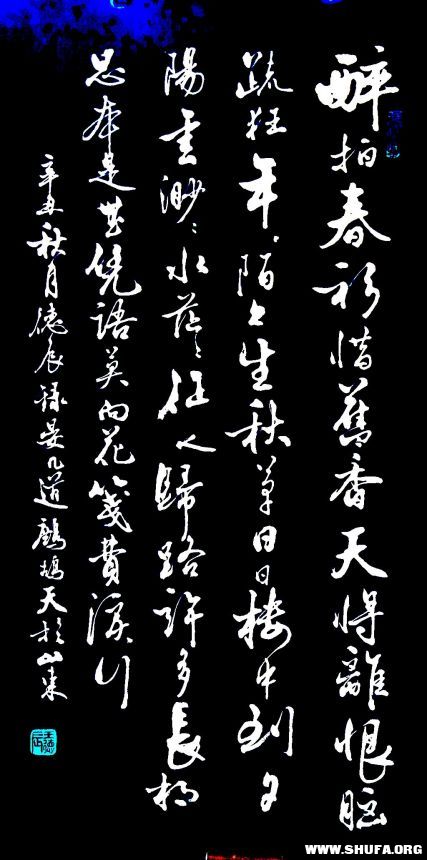 醉拍春衫惜舊香天將離恨惱
疏狂年〻陌上生秋草日日樓中到夕
陽雲渺〻水茫〻征人歸路許多長相
思本是無凭語莫向花箋費淚行
辛丑秋月德辰録晏几道鷓鴣天於山東
WWW.SHUFA.ORG